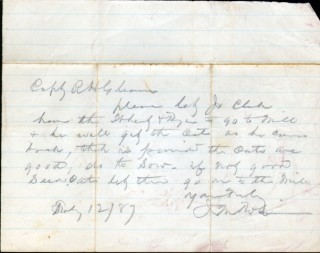 Capt
please let Jo Clark
have the Wheat & Rye to go to Mill
& he will get the Oats as he comes
back, that is provided the Oats are
good, do to Sow. if not good
Seed Oats let them go on to the Mill
Yours Truly
12/87